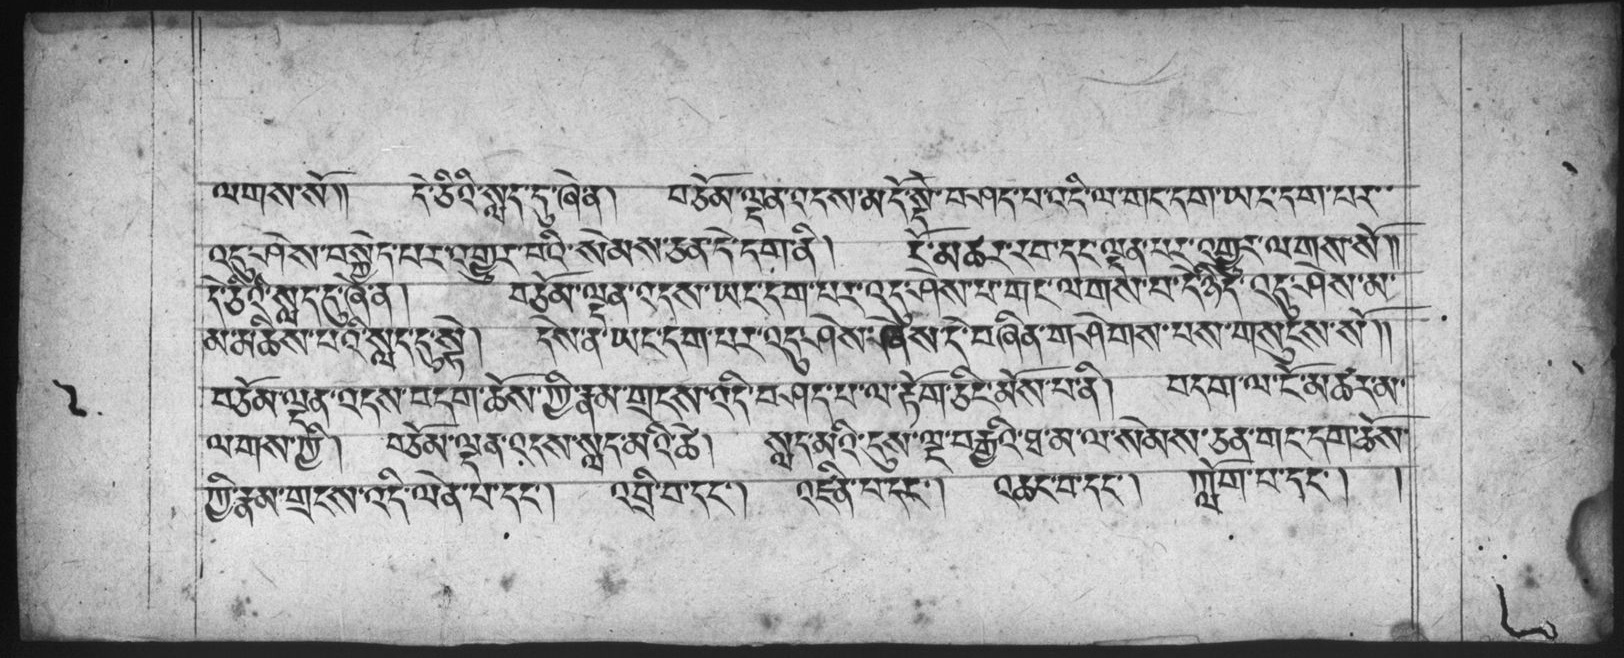 ལགས་སོ།།    དེ་ཅིའི་སླད་དུ་ཞེ་ན།    བཅོམ་ལྡན་འདས་མདོ་སྡེ་བཤད་པ་འདི་ལ་གང་དག་ཡང་དག་པར་
འདུ་ཤེས་བསྐྱེད་པར་འགྱུར་བའི་སེམས་ཅན་དེ་དག་ནི།    ངོ་མཚར་རབ་དང་ལྡན་པར་འགྱུར་ལགས་སོ།།
དེ་ཅིའི་སླད་དུ་ཞེ་ན།    བཅོམ་ལྡན་འདས་ཡང་དག་པར་འདུ་ཤེས་པ་གང་ལགས་པ་དེ་ཉིད་འདུ་ཤེས་མ་
མ་མཆིས་པའི་སླད་དུ་སྟེ།    དེས་ན་ཡང་དག་པར་འདུ་ཤེས་ཞེས་དེ་བཞིན་གཤེགས་པས་གསུངས་སོ།།
བཅོམ་ལྡན་འདས་བདག་ཆོས་ཀྱི་རྣམ་གྲངས་འདི་བཤད་པ་ལ་རྟོག་ཅིང་མོས་པ་ནི།    བདག་ལ་ངོ་མཚར་མ་
ལགས་ཀྱི།    བཅོམ་ལྡན་འདས་སླད་མའི་ཚེ།    སླད་མའི་དུས་ལྔ་བརྒྱའི་ཐ་མ་ལ་སེམས་ཅན་གང་དག་ཆོས་
ཀྱི་རྣམ་གྲངས་འདི་ལེན་པ་དང་།    འབྲི་བ་དང་།    འཛིན་པ་དང་།    འཆང་བ་དང་།    ཀློག་པ་དང་།    །